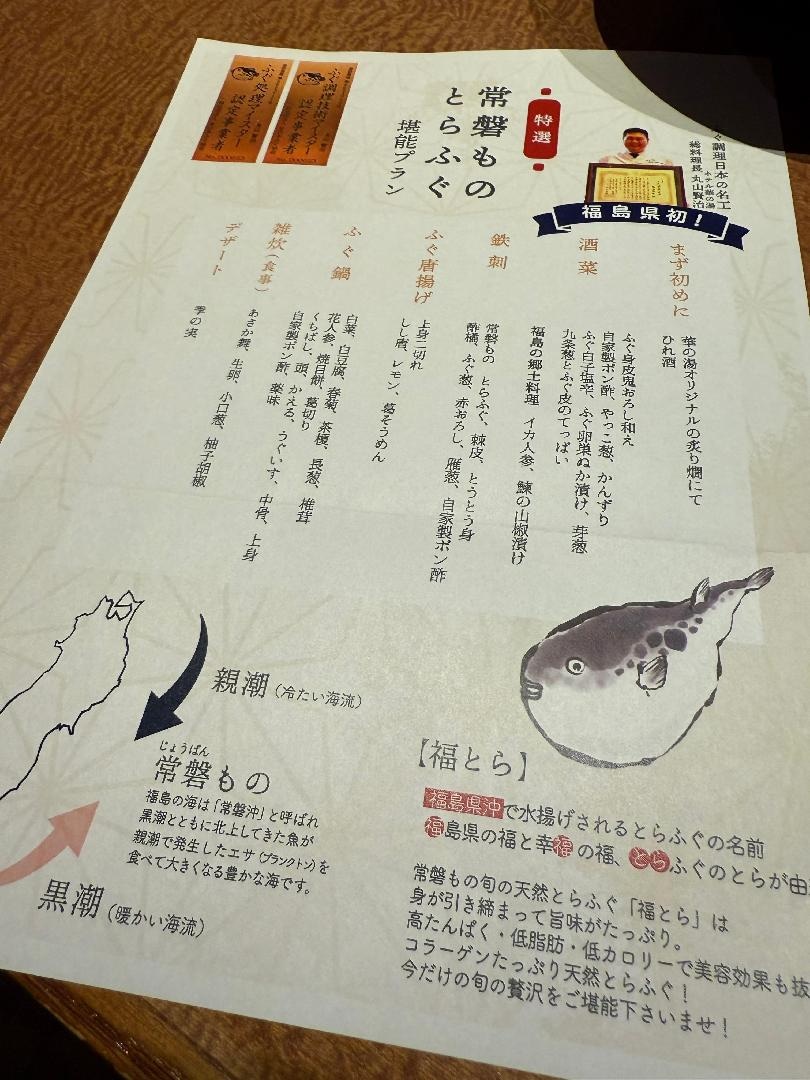 特選
常磐もの
とらふぐ
堪能プラン
ふぐ調理技術マイスター
認定事業者
ふぐ処理マイスター
認定事業者
ぐ調理日本の名工
ホテル華の湯
総料理長 丸山賢治
福島県初！
まず初めに
華の湯オリジナルの炙り燗にて
ひれ酒
酒菜
ふぐ身皮鬼おろし和え
自家製ポン酢、やっこ葱、かんずり
ふぐ白子塩辛、ふぐ卵巣ぬか漬け、芽葱
九条葱とふぐ皮のてっぱい
福島の郷土料理 イカ人参、鰊の山椒漬け
鉄刺
常磐もの とらふぐ、棘皮、とうとう身
酢橘、ふぐ葱、赤おろし、雁葱、自家製ポン酢
ふぐ唐揚げ
上身二切れ
しし唐、レモン、葛そうめん
ふぐ鍋
白菜、白豆腐、春菊、茶榎、長葱、椎茸
花人参、焼目餅、葛切り
くちばし、頭、かえる、うぐいす、中骨、上身
自家製ポン酢、薬味
雑炊（食事）
あさか舞、生卵、小口葱、柚子胡椒
デザート
季の実
親潮（冷たい海流）
じょうばん
常磐もの
福島の海は「常磐沖」と呼ばれ
黒潮とともに北上してきた魚が
親潮で発生したエサ（プランクトン）を
食べて大きくなる豊かな海です。
黒潮（暖かい海流）
【福とら】
福島県沖で水揚げされるとらふぐの名前
福島県の福と幸福の福、とらふぐのとらが由
常磐もの旬の天然とらふぐ「福とら」は
身が引き締まって旨味がたっぷり。
高たんぱく・低脂肪・低カロリーで美容効果も抜
コラーゲンたっぷり天然とらふぐ！
今だけの旬の贅沢をご堪能下さいませ！